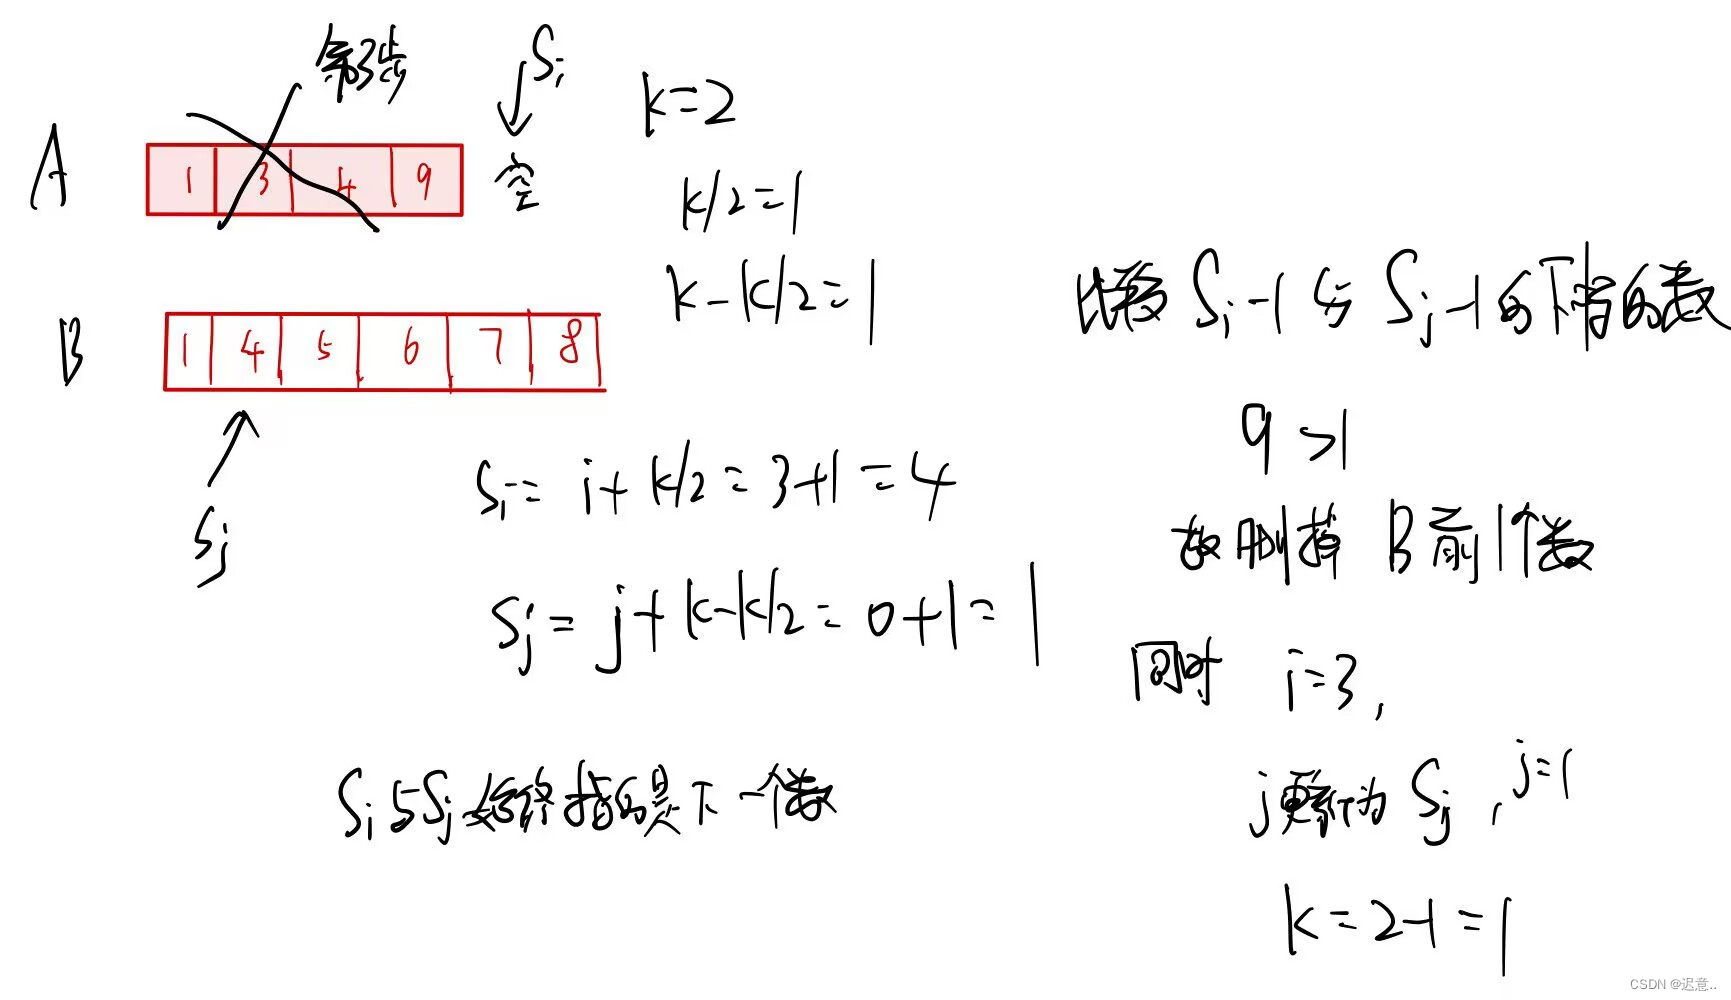 第3步
Si
A
1 3 4 9
空
k=2
k/2=1
k-k/2=1
B
1 4 5 6 7 8
Sj
Si= i+ k/2= 3+1=4
Sj= j+k-k/2= 0+1=1
Si与Sj始终指的是下一个数
比较 Si-1 与 Sj-1 的下指的数
9 >1
故删掉 B前1个数
同时 i=3,
j更新为 Sj , j=1
k=2-1=1
CSDN @迟意..